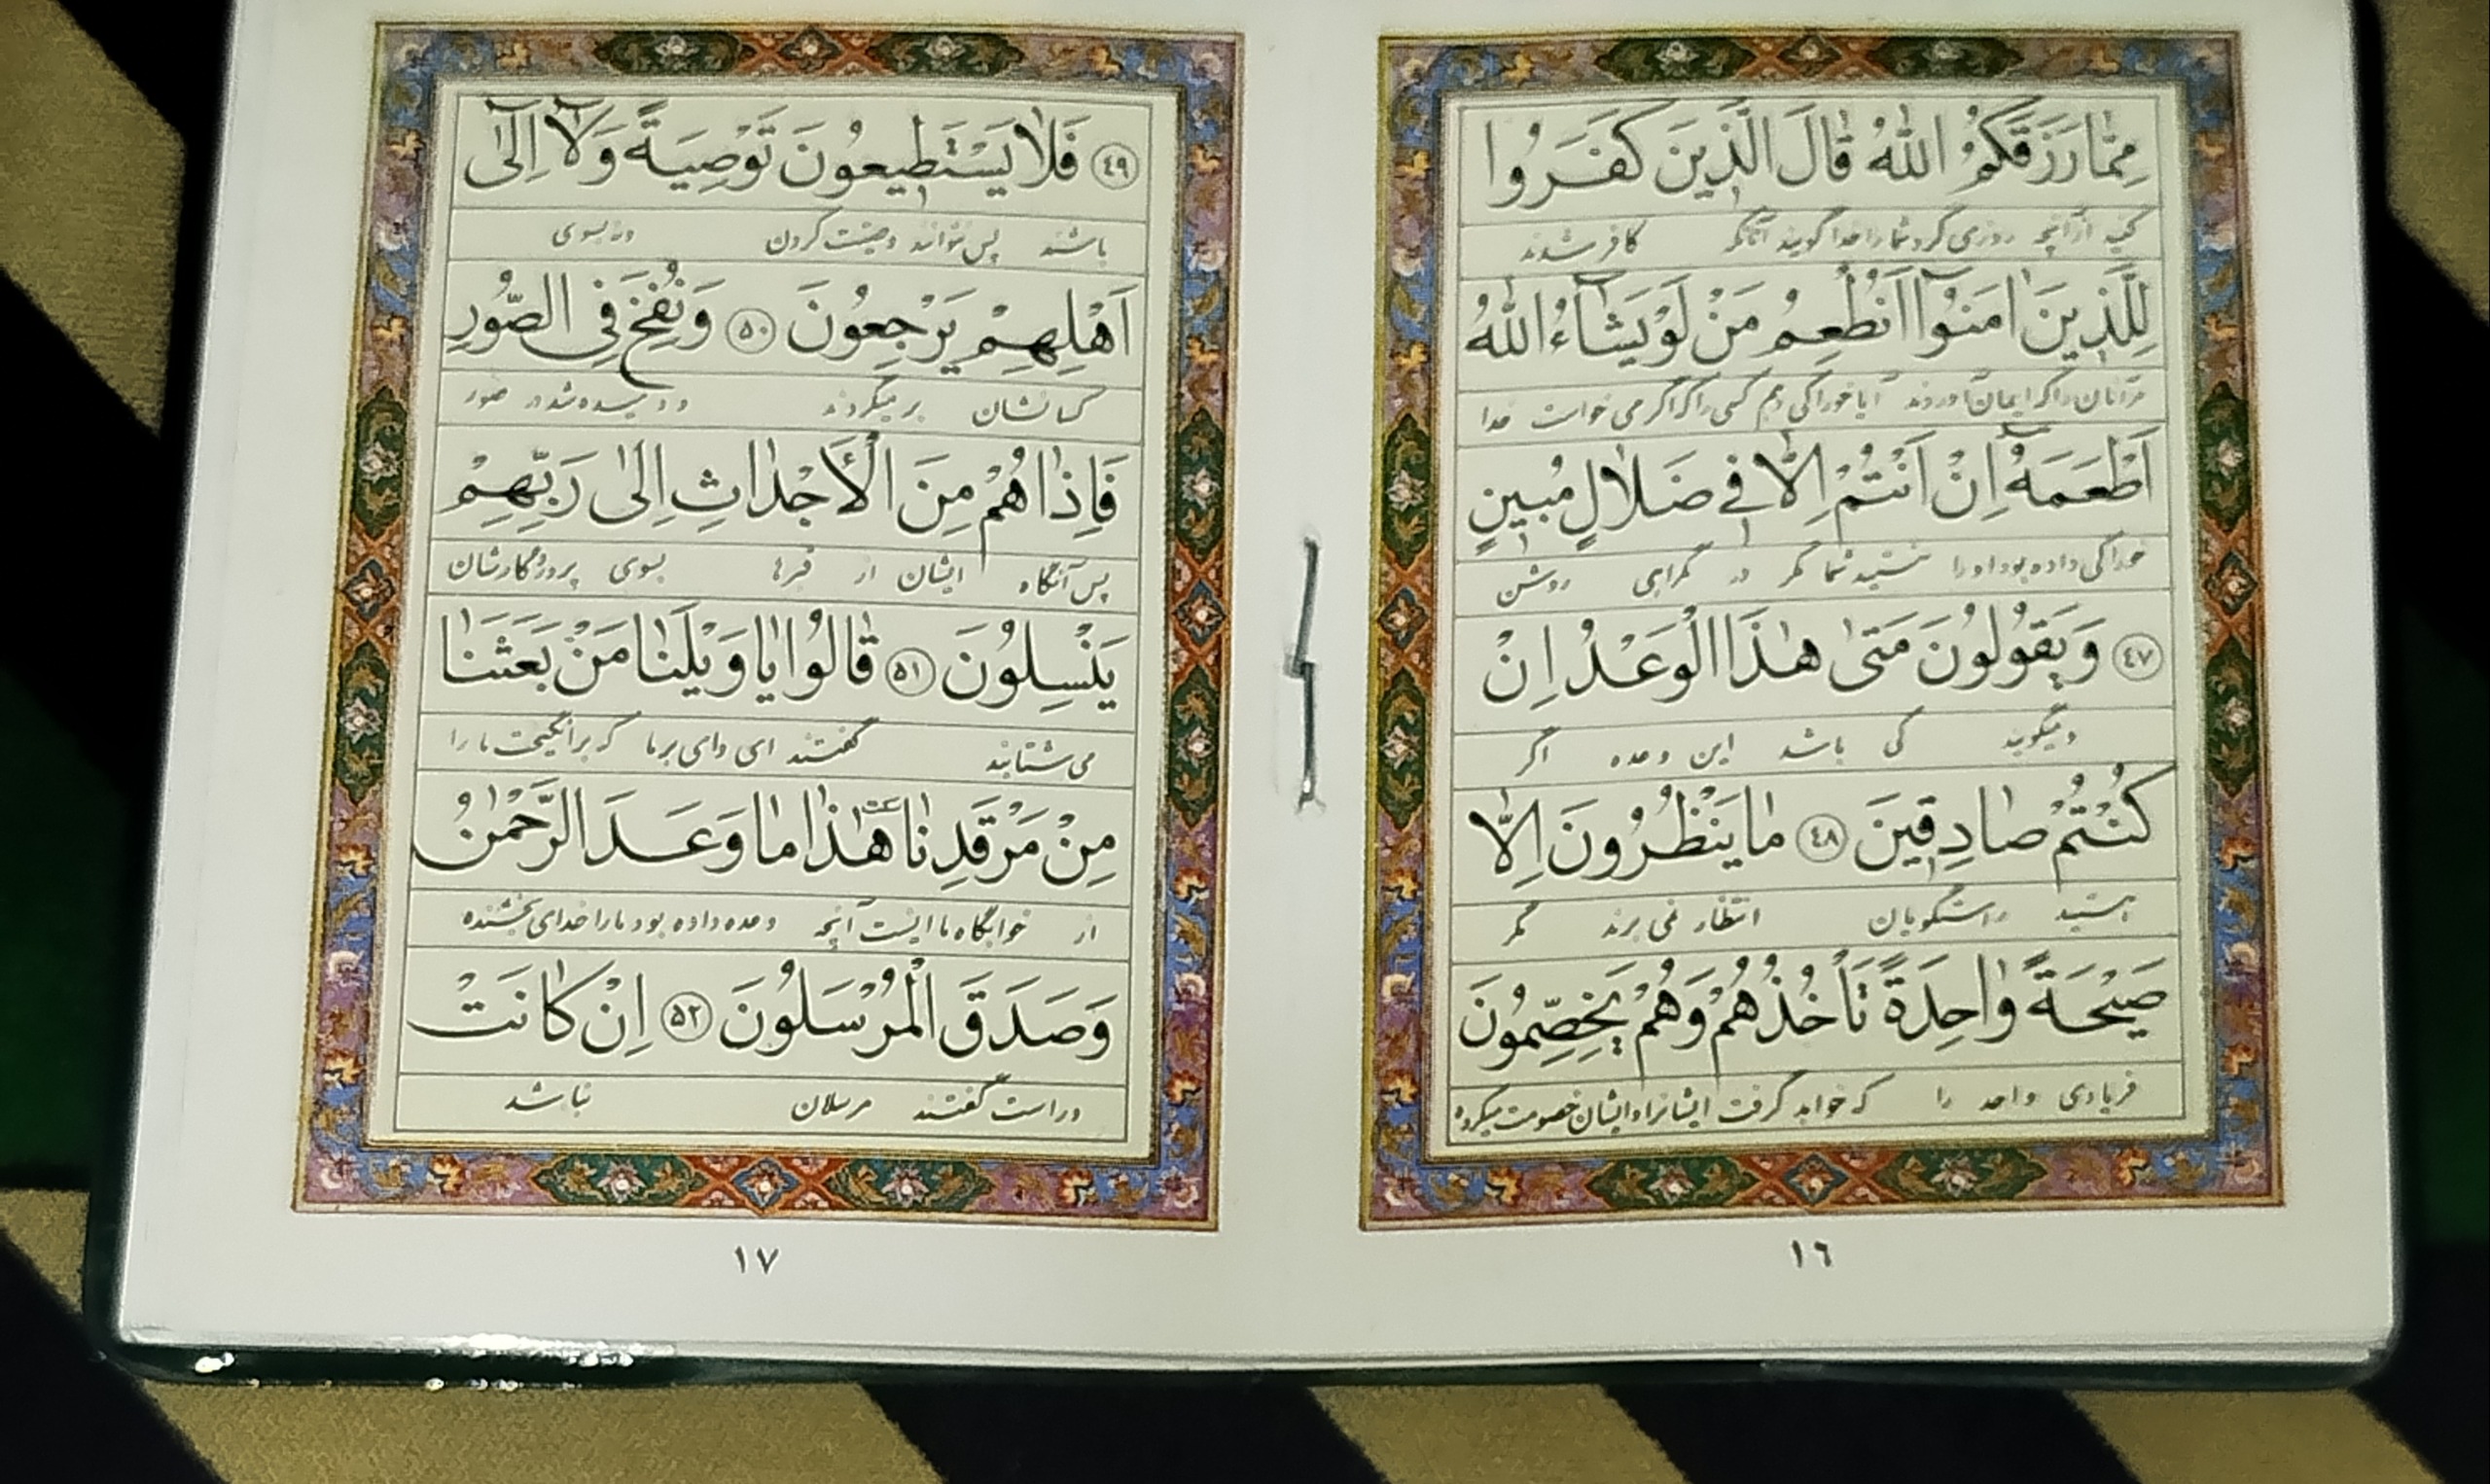 مِمّٰا رَزَقَكُمُ اللّٰهُ قٰالَ الَّذِينَ كَفَرُوا
كنيد از آنچه روزى كرد شما را خدا گويند آنانكه كافر شدند
لِلَّذِينَ اٰمَنُوٓا اَنُطْعِمُ مَنْ لَوْ يَشٰٓاءُ اللّٰهُ
مر آنان را كه ايمان آوردند آيا خوراكى دهم كسى را كه اگر مى خواست خدا
اَطْعَمَهُٓ اِنْ اَنْتُمْ اِلّٰا فِي ضَلاٰلٍ مُبِينٍ
خوراكى داده بود او را نستيد شما مگر در گمراهى روشن
٤٧ وَيَقُولُونَ مَتىٰ هٰذَا الْوَعْدُ اِنْ
و ميگويند كى باشد اين وعده اگر
كُنْتُمْ صٰادِقِينَ ٤٨ مٰا يَنْظُرُونَ اِلّٰا
هستيد راستگويان انتظار نمى برند مگر
صَيْحَةً وٰاحِدَةً تَأْخُذُهُمْ وَهُمْ يَخِصِّمُونَ
فريادى واحد را كه خواهد گرفت ايشانرا و ايشان خصومت ميكرده
١٦
٤٩ فَلاٰ يَسْتَطِيعُونَ تَوْصِيَةً وَلآٰ اِلىٰٓ
باشند پس نتوانند وصيت كردن و نه بسوى
اَهْلِهِمْ يَرْجِعُونَ ٥٠ وَنُفِخَ فِي الصُّورِ
كسانشان بر ميگردند و دميده شد در صور
فَاِذٰا هُمْ مِنَ الْأَجْدٰاثِ اِلىٰ رَبِّهِمْ
پس آنگاه ايشان از قبرها بسوى پروردگارشان
يَنْسِلُونَ ٥١ قٰالُوا يٰا وَيْلَنٰا مَنْ بَعَثَنٰا
مى شتابند گفتند اى واى بر ما كه برانگيخت ما را
مِنْ مَرْقَدِنٰا هٰذٰا مٰا وَعَدَ الرَّحْمٰنُ
از خوابگاه ما اينست آنچه وعده داده بود ما را خداى بخشنده
وَصَدَقَ الْمُرْسَلُونَ ٥٢ اِنْ كٰانَتْ
و راست گفتند مرسلان نباشد
١٧